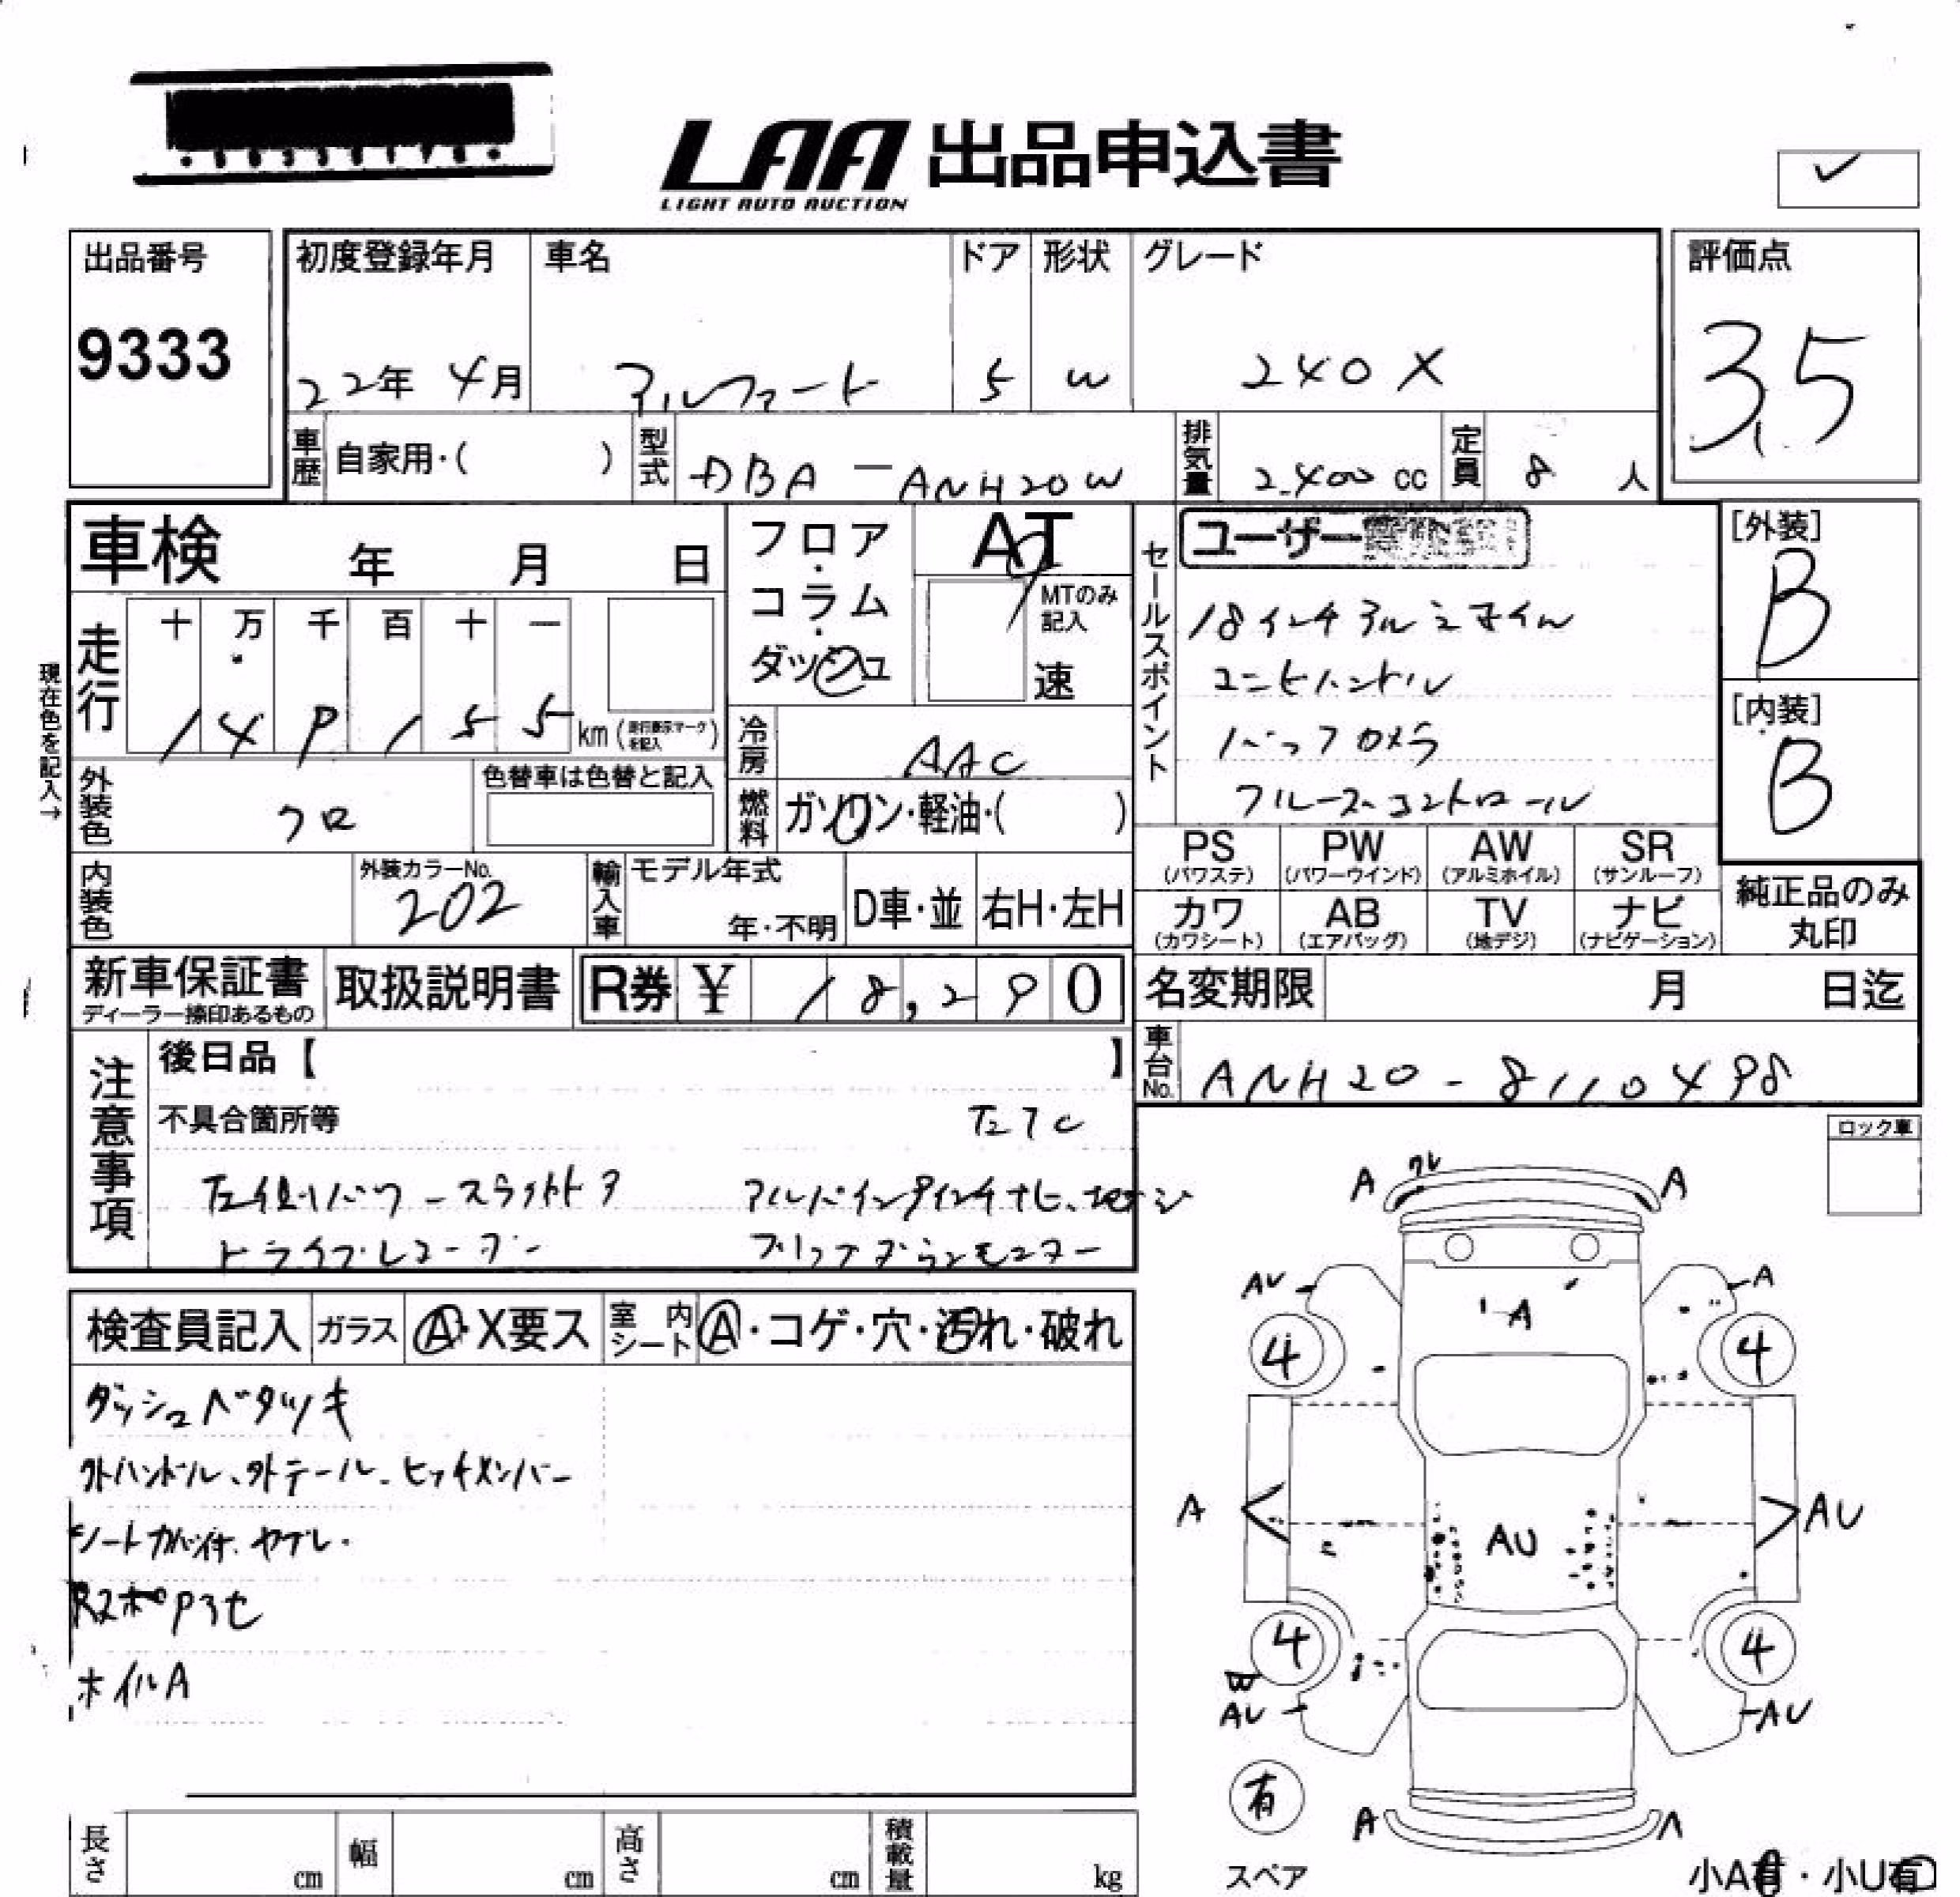 LAA 出品申込書
LIGHT AUTO AUCTION
出品番号
9333
初度登録年月
22年 4月
車名
アルファード
ドア
5
形状
W
グレード
240X
評価点
3.5
車歴
自家用・( )
型式
DBA - ANH20W
排気量
2.400 cc
定員
8 人
車検 年 月 日
フロア・コラム・ダッシュ
AT
MTのみ記入
速
セールスポイント
ユーザー
18インチアルミホイル
ユニセハンドル
バックカメラ
クルーズコントロール
[外装]
B
[内装]
B
現在色を記入→
走行
十 万 千 百 十 一
1 4 9 1 5 5 km
冷房
AAC
燃料
ガソリン・軽油・( )
外装色
クロ
色替車は色替と記入
内装色
外装カラーNo.
202
輸入車
モデル年式
年・不明
D車・並
右H・左H
PS (パワステ)
PW (パワーウインド)
AW (アルミホイル)
SR (サンルーフ)
カワ (カワシート)
AB (エアバッグ)
TV (地デジ)
ナビ (ナビゲーション)
純正品のみ
丸印
新車保証書
ディーラー捺印あるもの
取扱説明書
R券 ¥ 18,290
名変期限 月 日迄
車台No.
ANH20-8110498
注意事項
後日品【 】
不具合箇所等
左側パワースライドドア
ドライブレコーダー
フリップダウンモニター
ロック車
検査員記入
ガラス
A・X要ス
室内シート
A・コゲ・穴・汚れ・破れ
ダッシュベタツキ
外ハンドル、外テール、ヒッチメンバー
シートカバー付、ヤブレ.
ホイルA
A
クレ
A
AU
A
A
4
4
A
AU
AU
4
4
AU
AU
有
スペア
A
A
小A有・小U有
長さ cm
幅 cm
高さ cm
積載量 kg